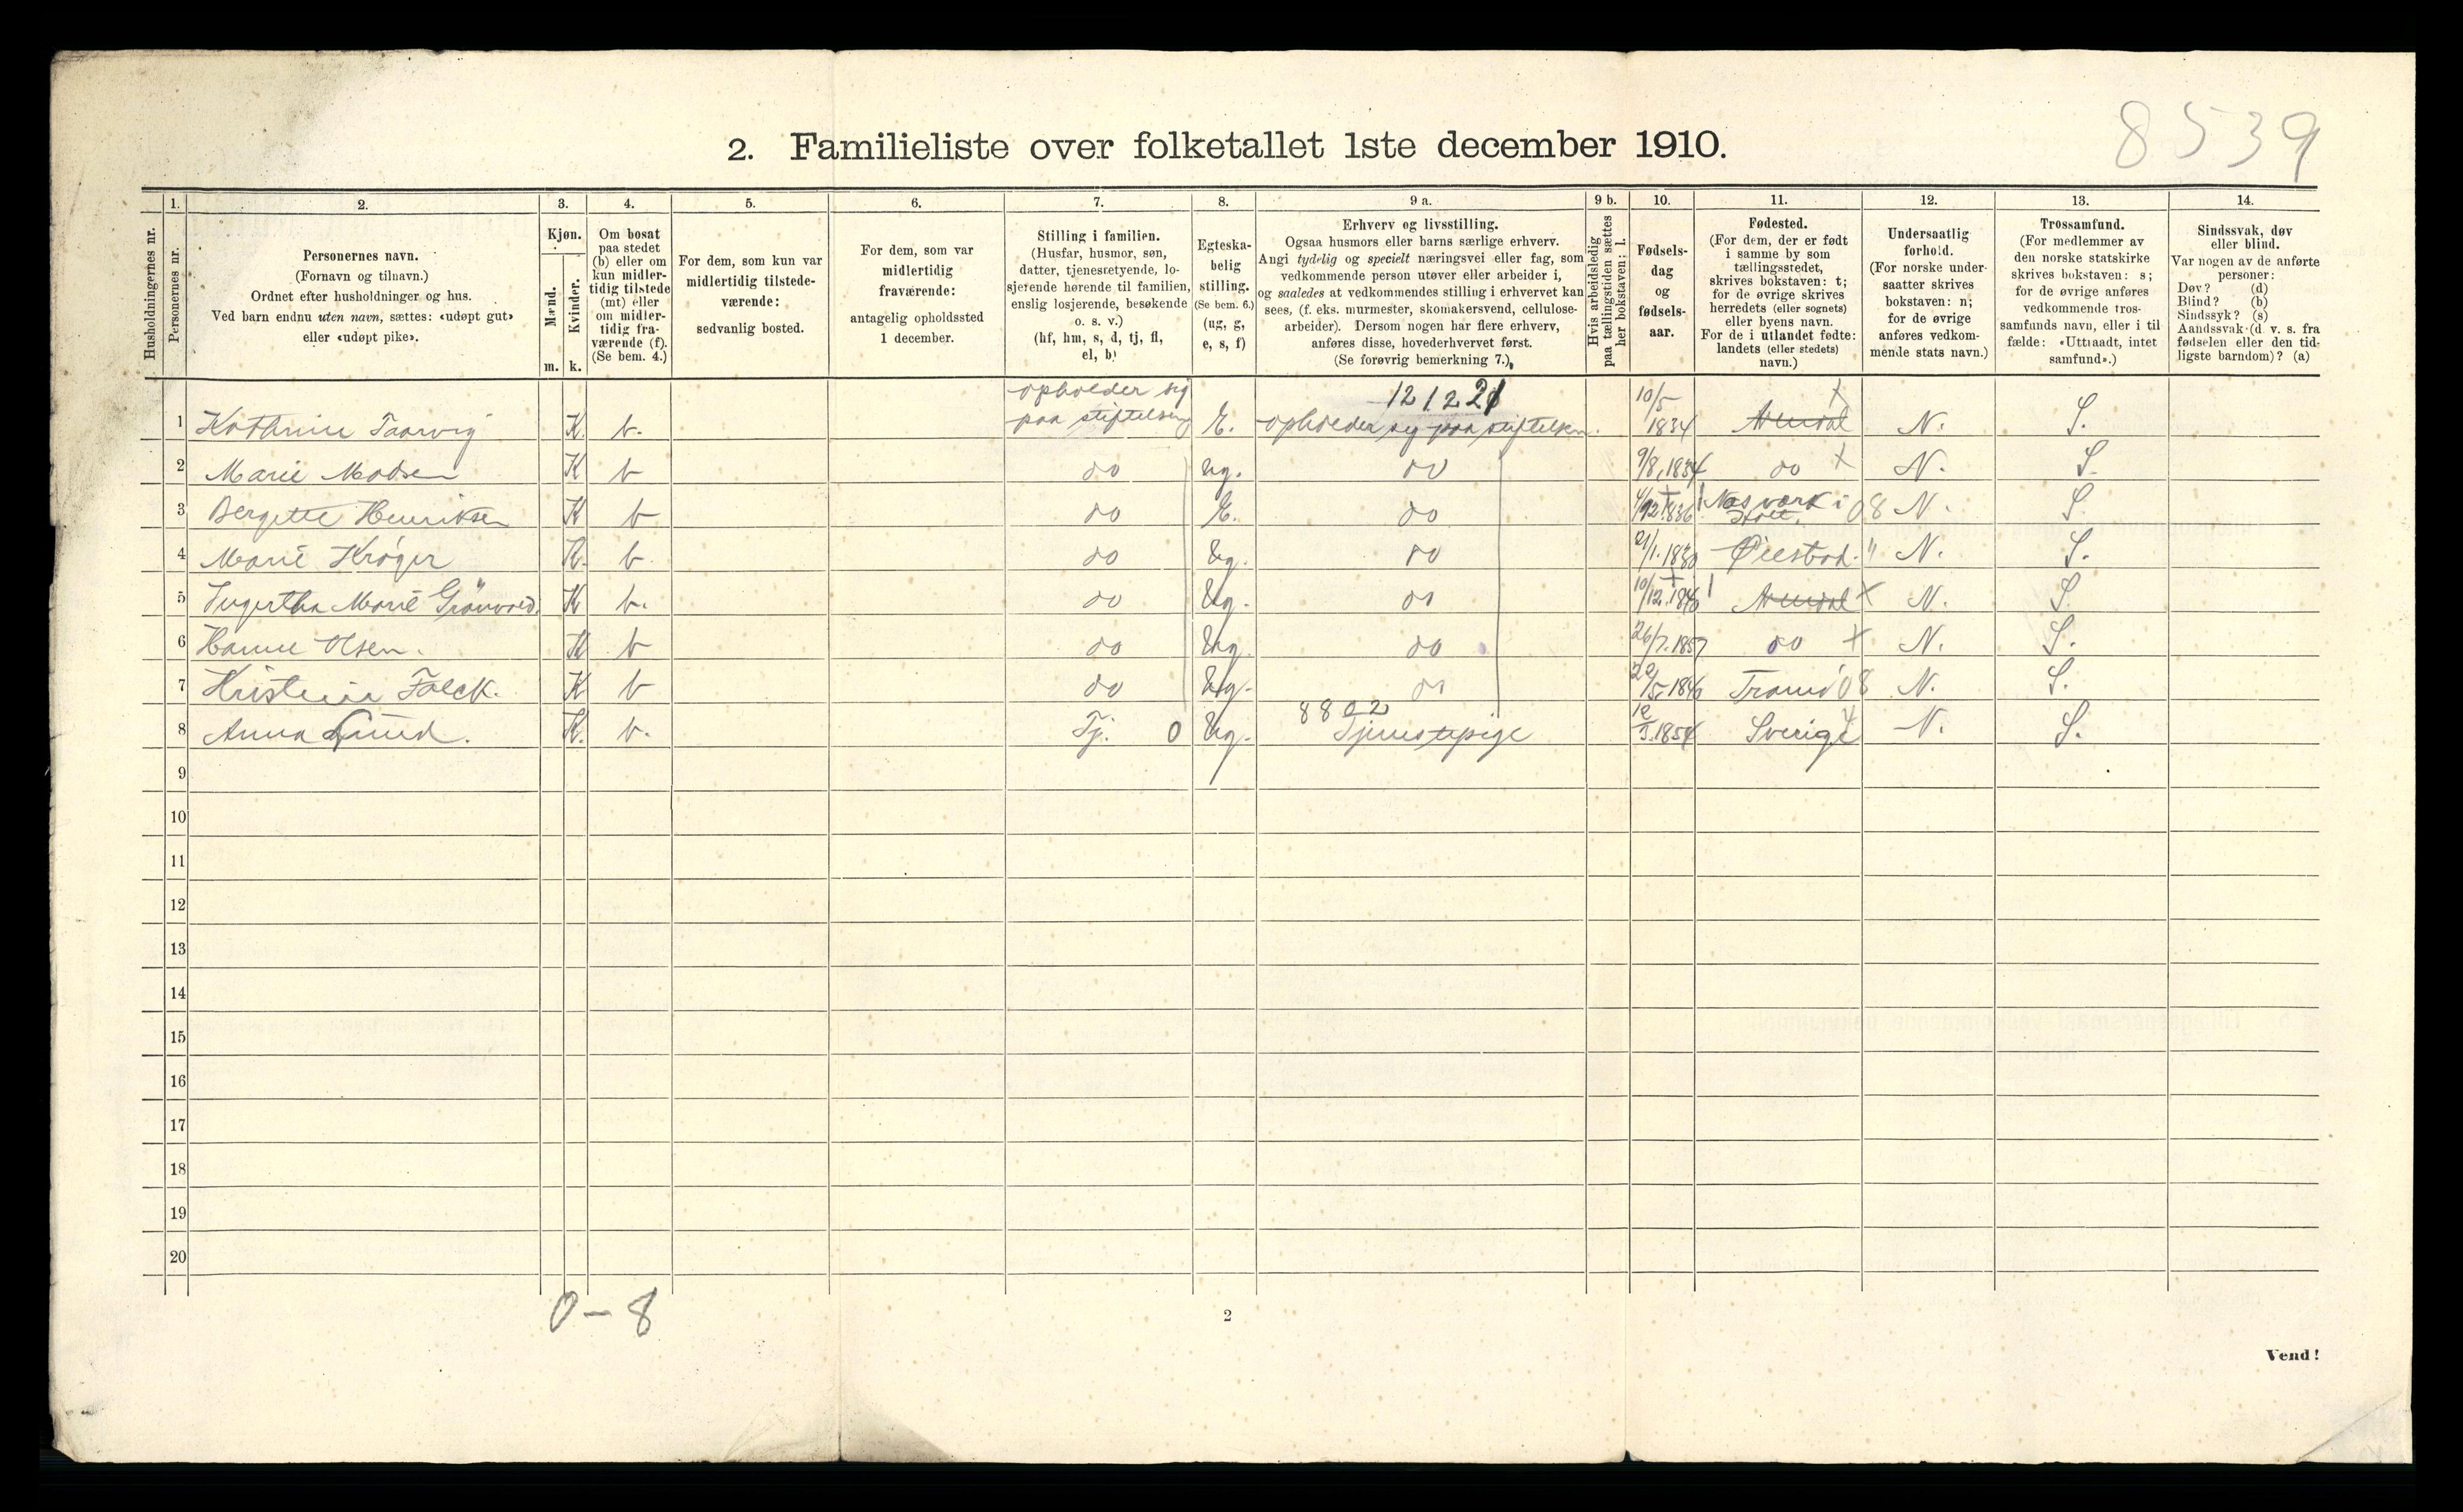 8539
2. Familieliste over folketallet 1ste december 1910.
Husholdningernes nr.
1.
Personernes nr.
2.
Personernes navn.
(Fornavn og tilnavn.)
Ordnet efter husholdninger og hus.
Ved barn endnu uten navn, sættes: «udøpt gut»
eller «udøpt pike».
3.
Kjøn.
Mænd.
Kvinder.
m. k.
4.
Om bosat
paa stedet
(b) eller om
kun midler-
tidig tilstede
(mt) eller
om midler-
tidig fra-
værende (f).
(Se bem. 4.)
5.
For dem, som kun var
midlertidig tilstede-
værende:
sedvanlig bosted.
6.
For dem, som var
midlertidig
fraværende:
antagelig opholdssted
1 december.
7.
Stilling i familien.
(Husfar, husmor, søn,
datter, tjenestetyende, lo-
sjerende hørende til familien,
enslig losjerende, besøkende
o. s. v.)
(hf, hm, s, d, tj, fl,
el, b)
8.
Egteska-
belig
stilling.
(Se bem. 6.)
(ug, g,
e, s, f)
9 a.
Erhverv og livsstilling.
Ogsaa husmors eller barns særlige erhverv.
Angi tydelig og specielt næringsvei eller fag, som
vedkommende person utøver eller arbeider i,
og saaledes at vedkommendes stilling i erhvervet kan
sees, (f. eks. murmester, skomakersvend, cellulose-
arbeider). Dersom nogen har flere erhverv,
anføres disse, hovederhvervet først.
(Se forøvrig bemerkning 7.)
9 b.
Hvis arbeidsledig
paa tællingstiden sættes
her bokstaven: l.
10.
Fødsels-
dag
og
fødsels-
aar.
11.
Fødested.
(For dem, der er født
i samme by som
tællingsstedet,
skrives bokstaven: t;
for de øvrige skrives
herredets (eller sognets)
eller byens navn.
For de i utlandet fødte:
landets (eller stedets)
navn.)
12.
Undersaatlig
forhold.
(For norske under-
saatter skrives
bokstaven: n;
for de øvrige
anføres vedkom-
mende stats navn.)
13.
Trossamfund.
(For medlemmer av
den norske statskirke
skrives bokstaven: s;
for de øvrige anføres
vedkommende tros-
samfunds navn, eller i til
fælde: «Uttraadt, intet
samfund».)
14.
Sindssvak, døv
eller blind.
Var nogen av de anførte
personer:
Døv? (d)
Blind? (b)
Sindssyk? (s)
Aandssvak (d. v. s. fra
fødselen eller den tid-
ligste barndom)? (a)
1 Kathrine Taarvig K. b. opholder sig paa stiftelsen E. opholder sig paa stiftelsen. 10/5 1834 Arendal N. S.
2 Marie Madsen K b do ug. do 9/8.1834 do N. S
3 Bergette Henriksen K b do E. do Nes værk i 08 N. S.
4 Marie Krøger K. b. do Ug. do 21/1. Øiestad. " N. S.
5 Marie Grönvold. K b. do Ug. do 10/12. Arendal N. S
6 Hanne Olsen. K b do Ug. do 26/7.1857 do N. S.
7 Kristine Falck. K b do Ug. do Tromö 08 N. S.
8 Anna Lund. K. b. Tj. 0 Ug. 8802 Tjenestepige 1854 Sverige N. S.
9
10
11
12
13
14
15
16
17
18
19
20
0 – 8
2
Vend!